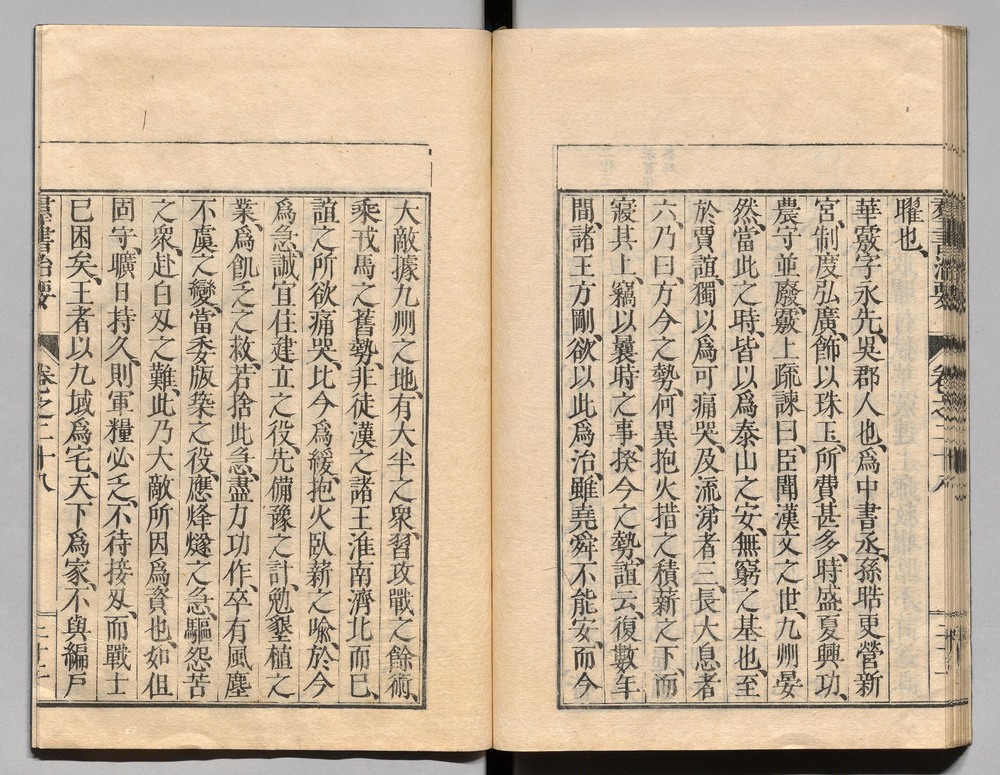 羣書治要 卷之二十八
曜也、
華覈字永先、吳郡人也、爲中書丞、孫晧更營新
宮、制度弘廣、飾以珠玉、所費甚多、時盛夏興功、
農守並廢、覈上疏諫曰、臣聞漢文之世、九州晏
然、當此之時、皆以爲泰山之安、無窮之基也、至
於賈誼、獨以爲可痛哭、及流涕者三、長大息者
六、乃曰、方今之勢、何異抱火措之積薪之下、而
寢其上、竊以曩時之事、揆今之勢、誼云、復數年
間、諸王方剛、欲以此爲治、雖堯舜不能安、而今
大敵據九州之地、有大半之衆、習攻戰之餘術、
乘戎馬之舊勢、非徒漢之諸王淮南濟北而已、
誼之所欲痛哭、比今爲緩、抱火臥薪之喩、於今
爲急、誠宜住建立之役、先備豫之計、勉墾植之
業、爲飢乏之救、若捨此急、盡力功作、卒有風塵
不虞之變、當委版築之役、應烽燧之急、驅怨苦
之衆、赴白刄之難、此乃大敵所因爲資也、如但
固守、曠日持久、則軍糧必乏、不待接刄、而戰士
已困矣、王者以九域爲宅、天下爲家、不與編戶
羣書治要 卷之二十八